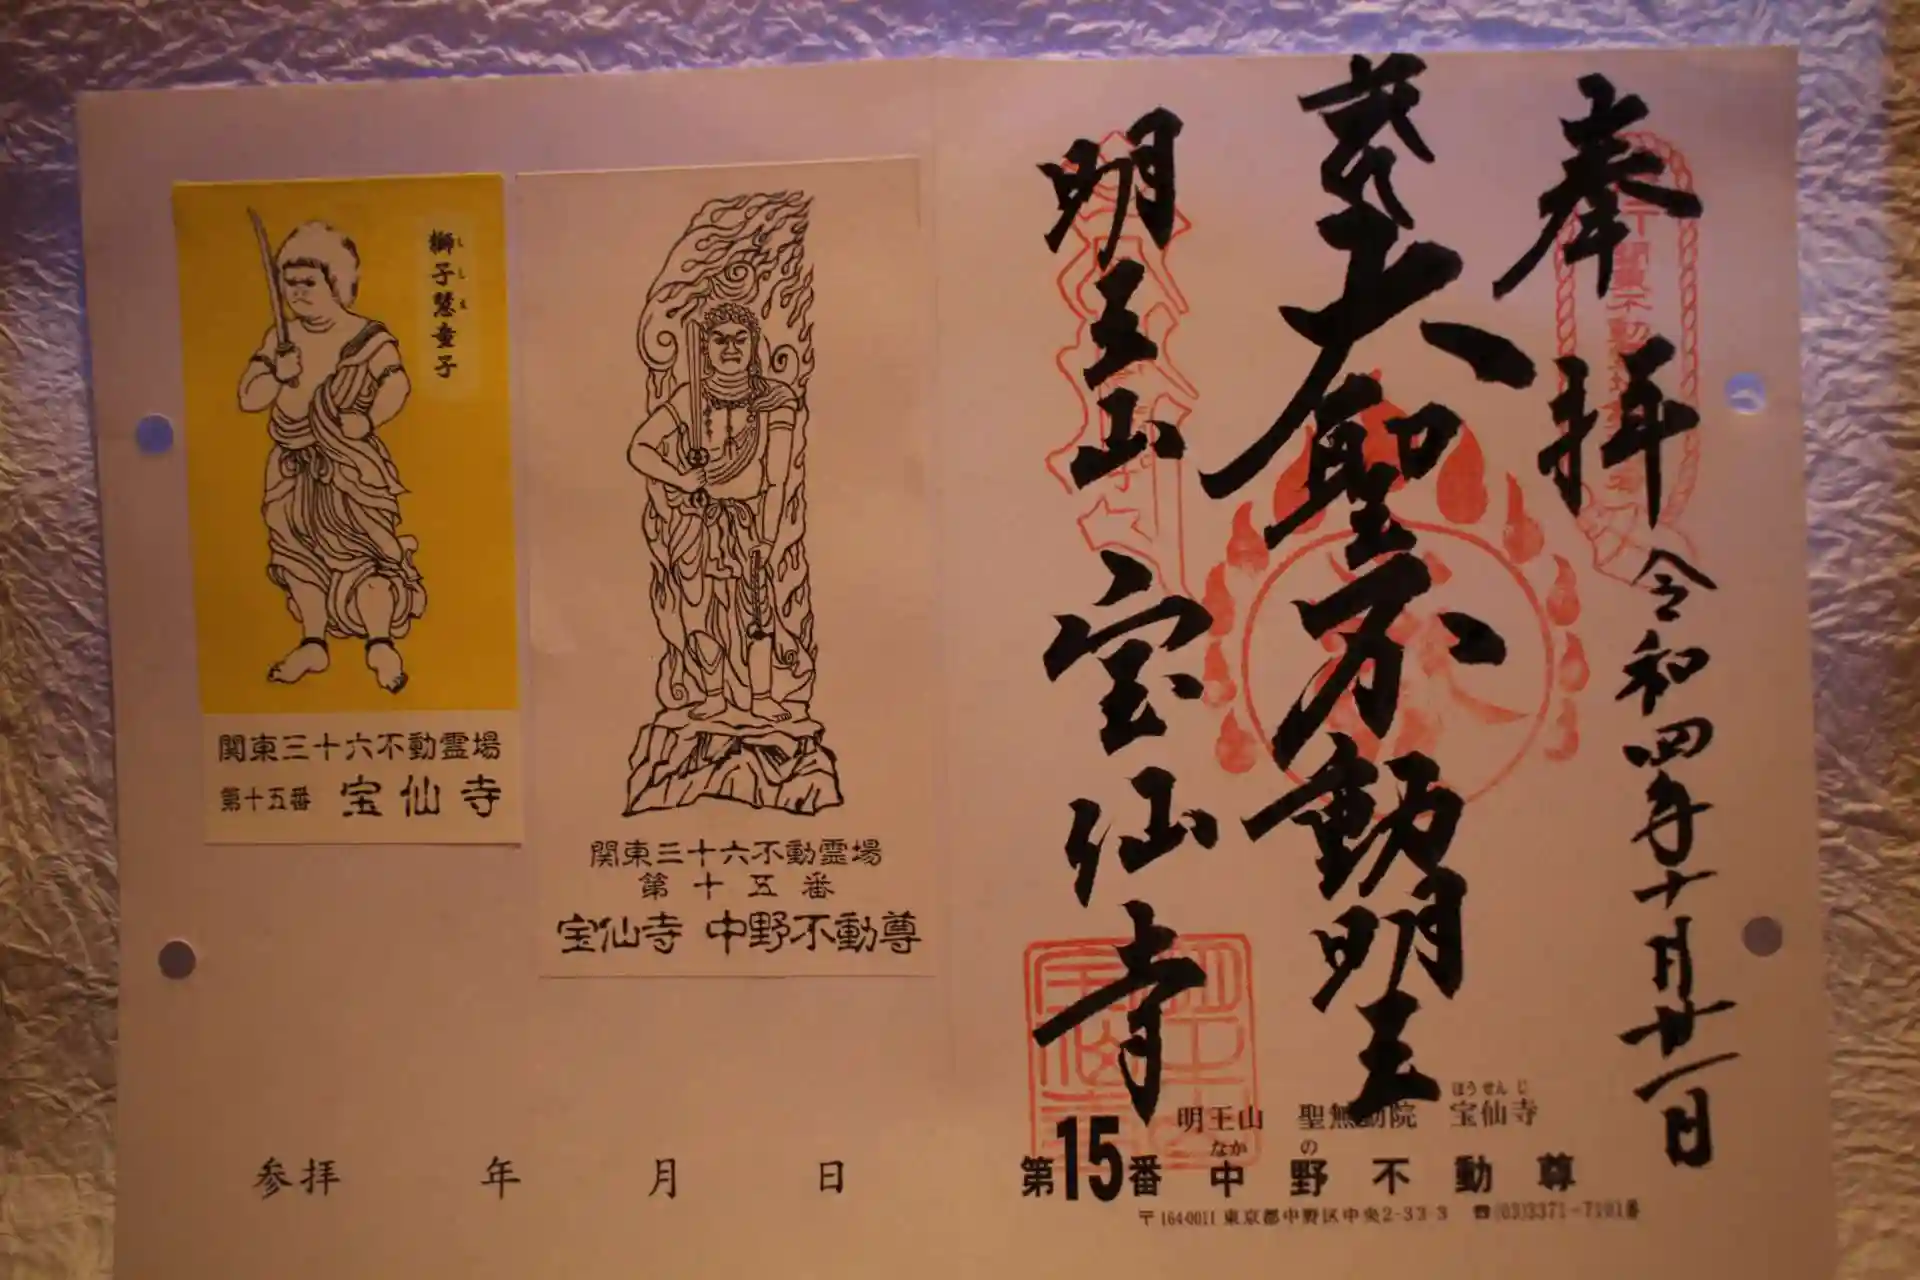 奉拝
令和四年十月廿一日
大聖不動明王
明王山
宝仙寺
獅子慧童子
しし え
関東三十六不動霊場
第十五番 宝仙寺
関東三十六不動霊場
第十五番
宝仙寺 中野不動尊
ほうせんじ
明王山 聖無動院 宝仙寺
なか の
第15番 中野不動尊
〒164-0011 東京都中野区中央2-33-3 ☎(03)3371-7101番
参拝 年 月 日